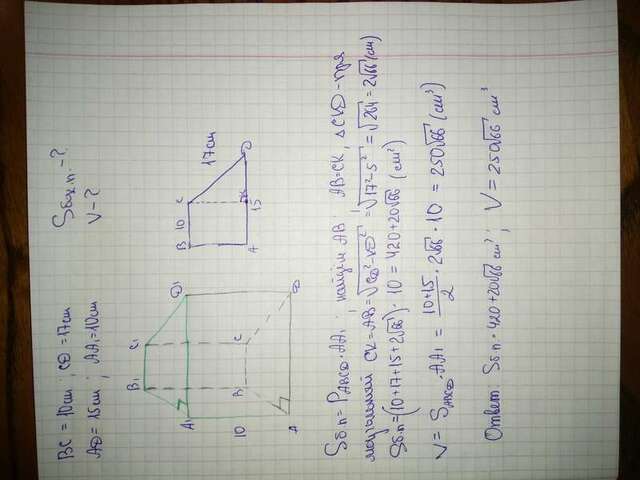 BC = 10см ; CD = 17см
AD = 15см ; AA₁ = 10см
Sбок.п. - ?
V - ?
B₁
C₁
A₁
D₁
10
B
C
A
D
B
10
C
17см
A
K
15
D
Sб.п = P_ABCD · AA₁ ; найдём AB ; AB = CK, △CKD - пря
моугольный CK = AB = √CD² - KD² = √17² - 5² = √264 = 2√66 (см)
Sб.п = (10 + 17 + 15 + 2√66) · 10 = 420 + 20√66 (см²)
V = S_ABCD · AA₁ = 10+15/2 · 2√66 · 10 = 250√66 (см³)
Ответ Sб.п. 420 + 20√66 см² ; V = 250√66 см³